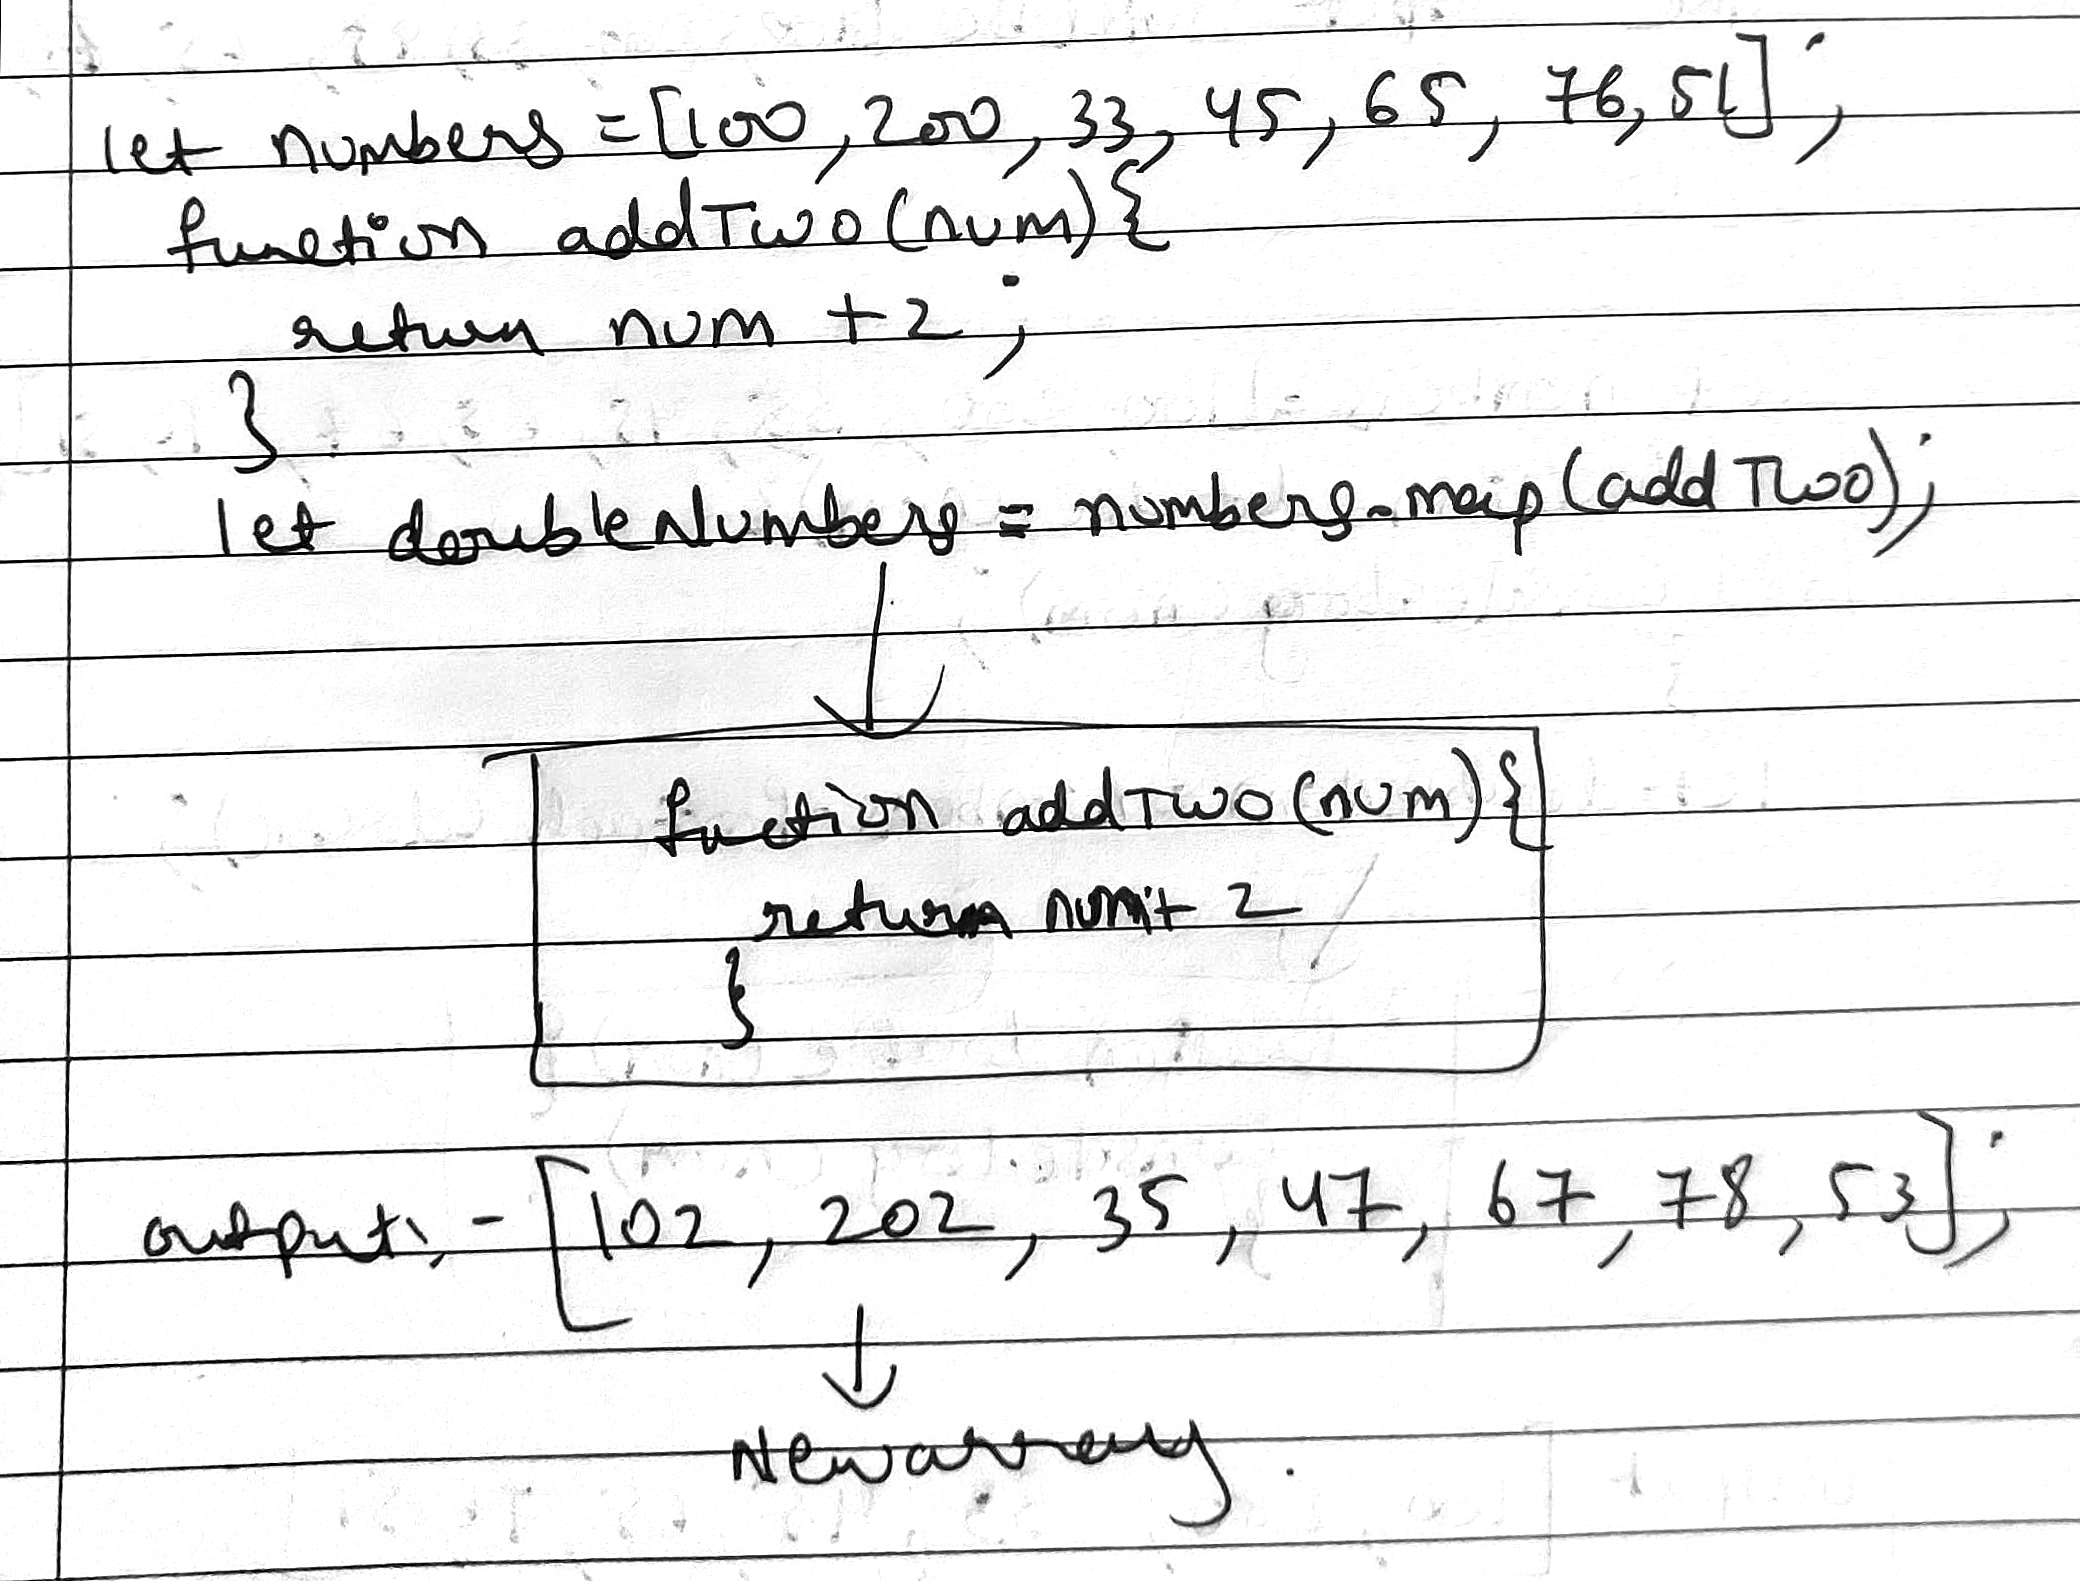 let numbers = [100, 200, 33, 45, 65, 76, 51];
function addTwo(num){
return num +2;
}
let doubleNumbers = numbers.map(addTwo);
fuction addTwo(num){
return num + 2
}
output: - [102, 202, 35, 47, 67, 78, 53];
Newarray.